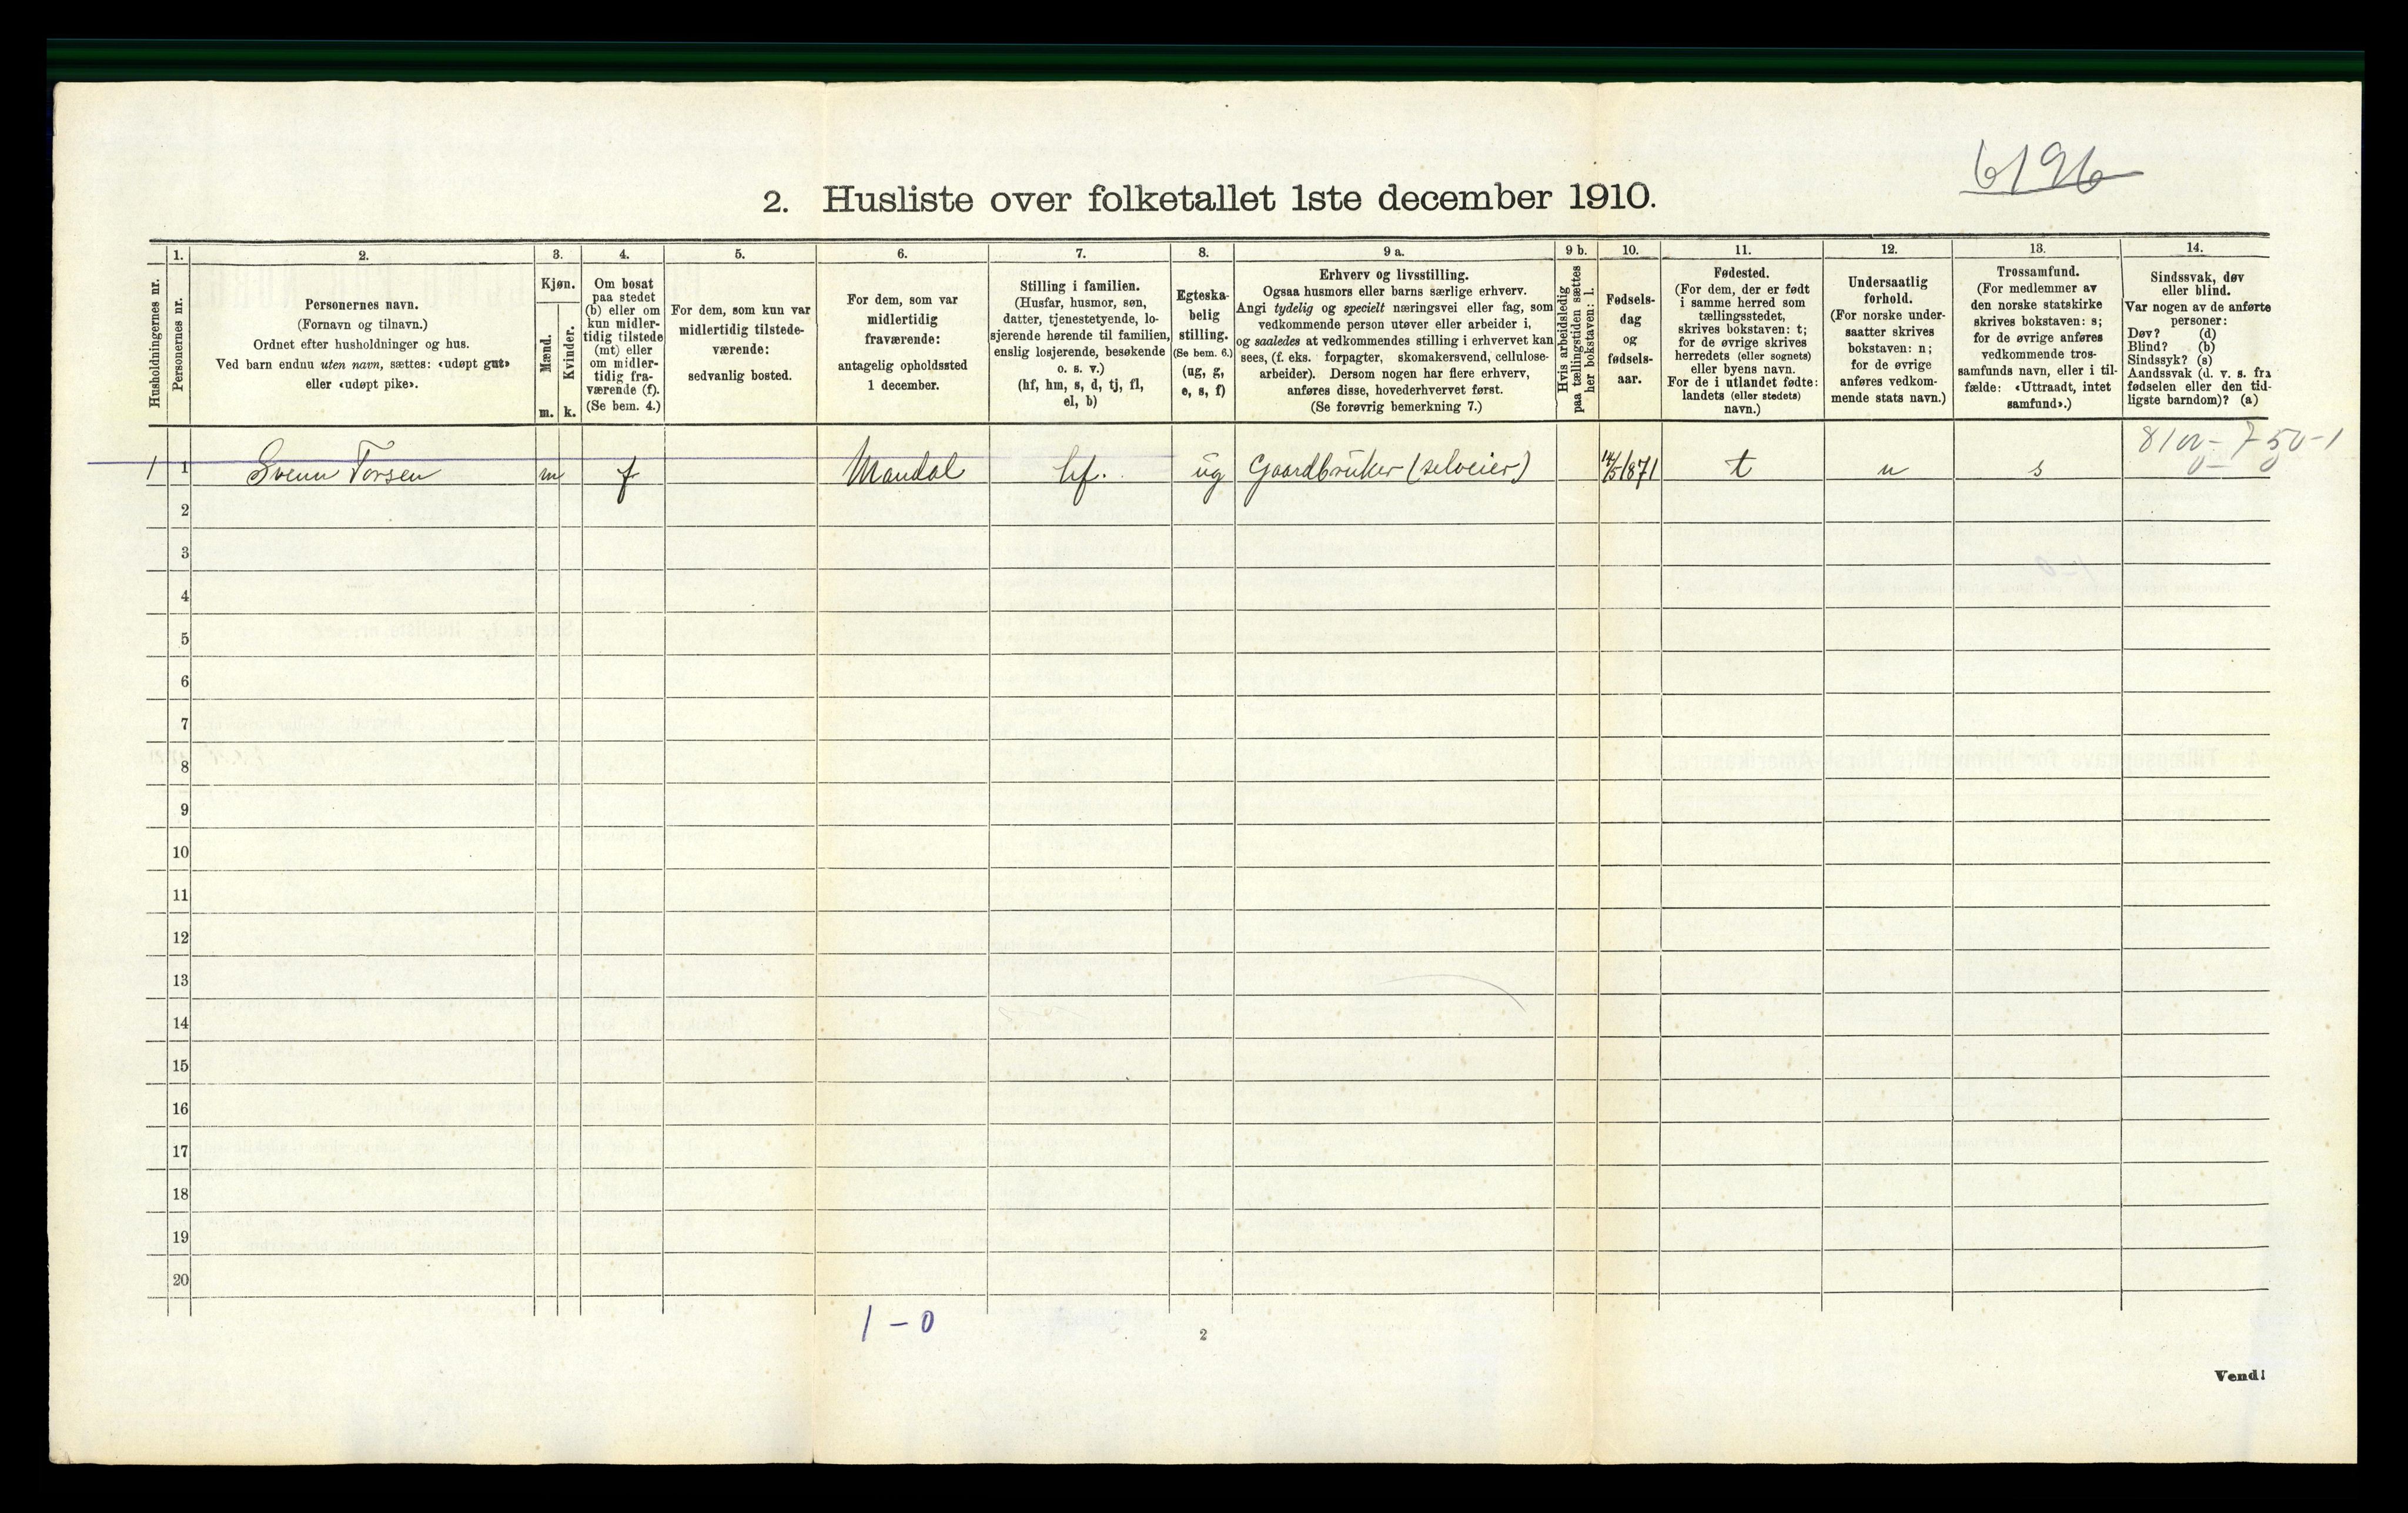 6196
2. Husliste over folketallet 1ste december 1910.
Husholdningernes nr.
1.
Personernes nr.
2.
Personernes navn.
(Fornavn og tilnavn.)
Ordnet efter husholdninger og hus.
Ved barn endnu uten navn, sættes: «udøpt gut»
eller «udøpt pike».
3.
Kjøn.
Mænd.
m.
Kvinder.
k.
4.
Om bosat
paa stedet
(b) eller om
kun midler-
tidig tilstede
(mt) eller
om midler-
tidig fra-
værende (f).
(Se bem. 4.)
5.
For dem, som kun var
midlertidig tilstede-
værende:
sedvanlig bosted.
6.
For dem, som var
midlertidig
fraværende:
antagelig opholdssted
1 december.
7.
Stilling i familien.
(Husfar, husmor, søn,
datter, tjenestetyende, lo-
sjerende hørende til familien,
enslig losjerende, besøkende
o. s. v.)
(hf, hm, s, d, tj, fl,
el, b)
8.
Egteska-
belig
stilling.
(Se bem. 6.)
(ug, g,
e, s, f)
9 a.
Erhverv og livsstilling.
Ogsaa husmors eller barns særlige erhverv.
Angi tydelig og specielt næringsvei eller fag, som
vedkommende person utøver eller arbeider i,
og saaledes at vedkommendes stilling i erhvervet kan
sees, (f. eks. forpagter, skomakersvend, cellulose-
arbeider). Dersom nogen har flere erhverv,
anføres disse, hovederhvervet først.
(Se forøvrig bemerkning 7.)
9 b.
Hvis arbeidsledig
paa tællingstiden sættes
her bokstaven: l.
10.
Fødsels-
dag
og
fødsels-
aar.
11.
Fødested.
(For dem, der er født
i samme herred som
tællingsstedet,
skrives bokstaven: t;
for de øvrige skrives
herredets (eller sognets)
eller byens navn.
For de i utlandet fødte:
landets (eller stedets)
navn.)
12.
Undersaatlig
forhold.
(For norske under-
saatter skrives
bokstaven: n;
for de øvrige
anføres vedkom-
mende stats navn.)
13.
Trossamfund.
(For medlemmer av
den norske statskirke
skrives bokstaven: s;
for de øvrige anføres
vedkommende tros-
samfunds navn, eller i til-
fælde: «Uttraadt, intet
samfund».)
14.
Sindssvak, døv
eller blind.
Var nogen av de anførte
personer:
Døv? (d)
Blind? (b)
Sindssyk? (s)
Aandssvak (d. v. s. fra
fødselen eller den tid-
ligste barndom)? (a)
1 1 Svenn Torsen m f Mandal hf. ug Gaardbruker (selveier) 14/5 1871 t n s
2
3
4
5
6
7
8
9
10
11
12
13
14
15
16
17
18
19
20
1 – 0
2
Vend!